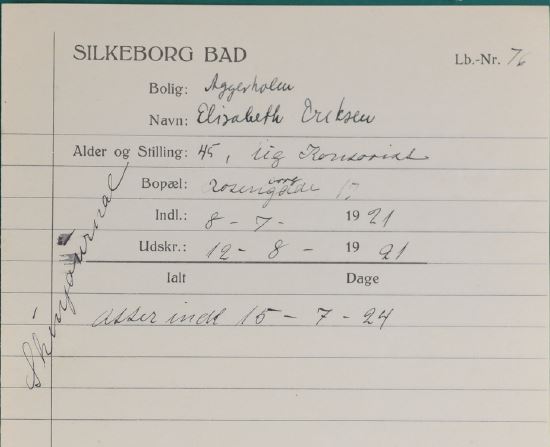 SILKEBORG BAD
Lb.-Nr. 76
Bolig: Aggerholm
Navn: Elisabeth Eriksen
Alder og Stilling: 45,
Bopæl:
Indl.: 8 - 7 - 1921
Udskr.: 12 - 8 - 1921
Ialt Dage
atter indl 15 - 7 - 24